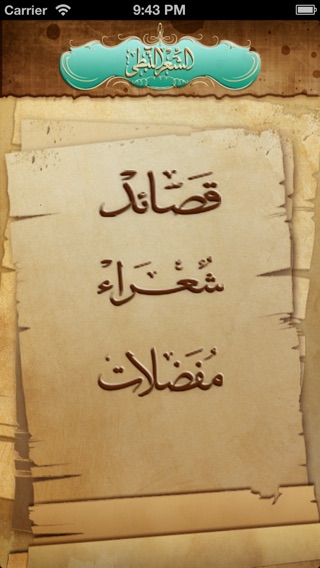 Carrier 9:43 PM
الشعر النبطي
قَصَائدْ
شُعَرَاءْ
مُفَضلات